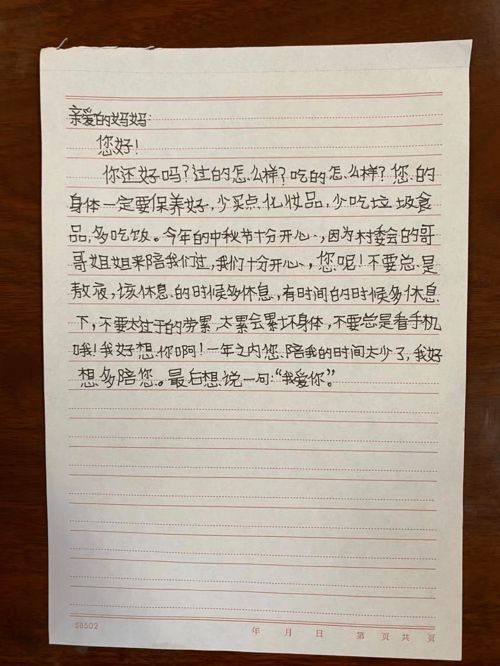 亲爱的妈妈:
您好!
你还好吗?过的怎么样?吃的怎么样?您的
身体一定要保养好,少买点化妆品,少吃垃圾食
品,多吃饭。今年的中秋节十分开心,因为村委会的哥
哥姐姐来陪我们过,我们十分开心,您呢!不要总是
熬夜,该休息的时候多休息,有时间的时候多休息
下,不要太过于的劳累,太累会累坏身体,不要总是看手机
哦!我好想你啊!一年之内您陪我的时间太少了,我好
想多陪您。最后想说一句:“我爱你”。
S6502 年 月 日 第 页 共 页